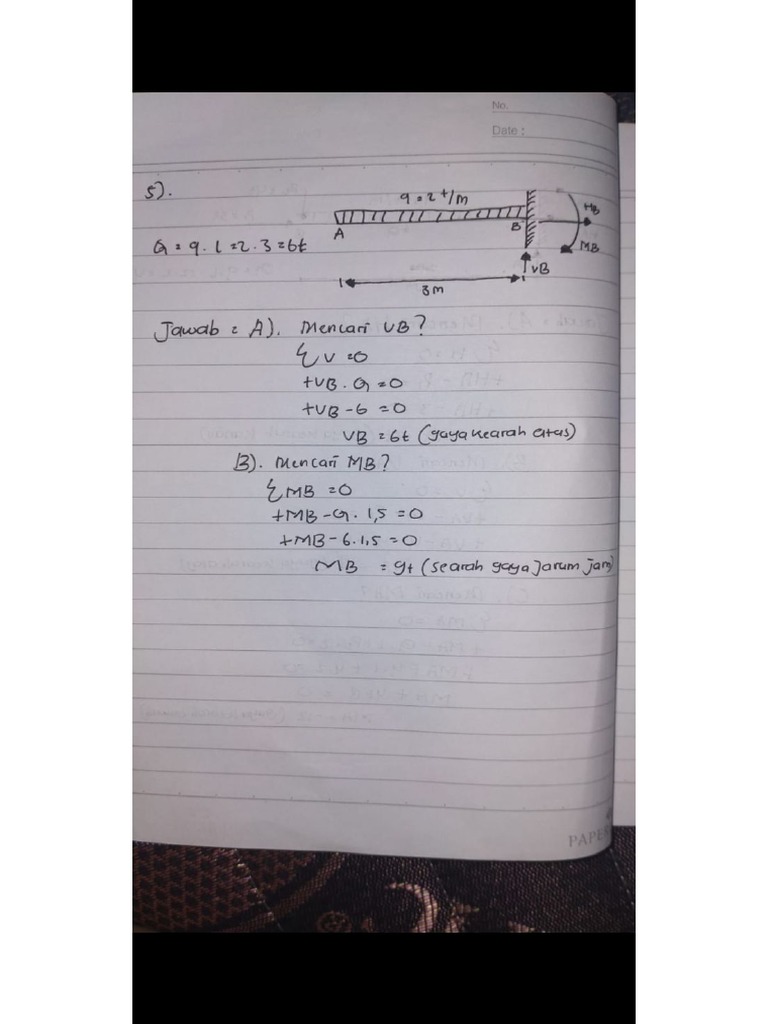 No.
Date :
5).
q = 2 t/m
A
B
HB
MB
VB
3m
Q = q . l = 2 . 3 = 6t
Jawab = A). Mencari VB?
ΣV = 0
+VB - Q = 0
+VB - 6 = 0
VB = 6t (gaya kearah atas)
B). Mencari MB?
ΣMB = 0
+MB - Q . 1,5 = 0
+MB - 6 . 1,5 = 0
MB = 9t (searah gaya jarum jam)